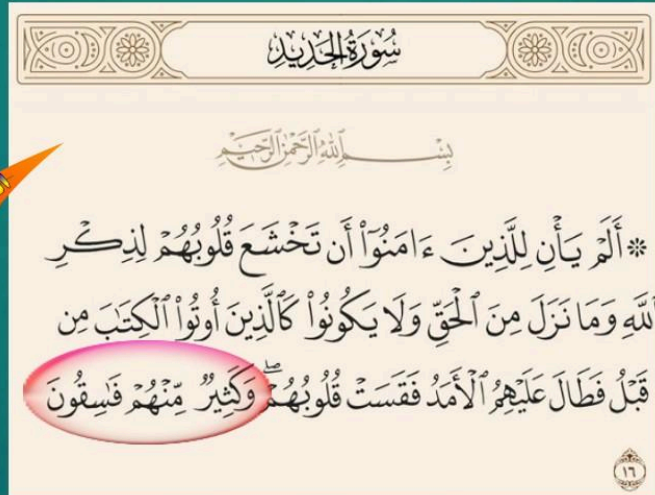 سُورَةُ الحَدِيدِ
بِسْمِ ٱللَّهِ ٱلرَّحْمَٰنِ ٱلرَّحِيمِ
۞ أَلَمْ يَأْنِ لِلَّذِينَ ءَامَنُوٓا۟ أَن تَخْشَعَ قُلُوبُهُمْ لِذِكْرِ
ٱللَّهِ وَمَا نَزَلَ مِنَ ٱلْحَقِّ وَلَا يَكُونُوا۟ كَٱلَّذِينَ أُوتُوا۟ ٱلْكِتَٰبَ مِن
قَبْلُ فَطَالَ عَلَيْهِمُ ٱلْأَمَدُ فَقَسَتْ قُلُوبُهُمْ ۖ وَكَثِيرٌ مِّنْهُمْ فَٰسِقُونَ
١٦